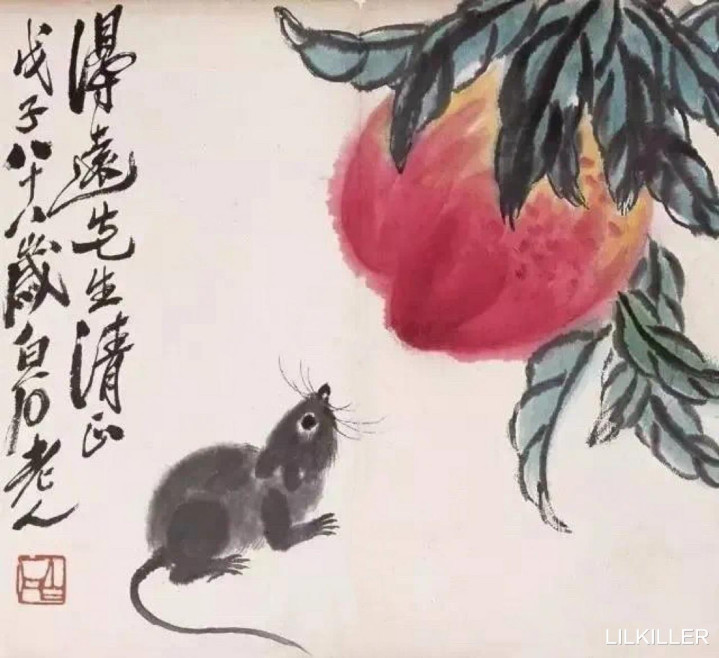 得遠先生清正
戊子八十八歲白石老人
LILKILLER